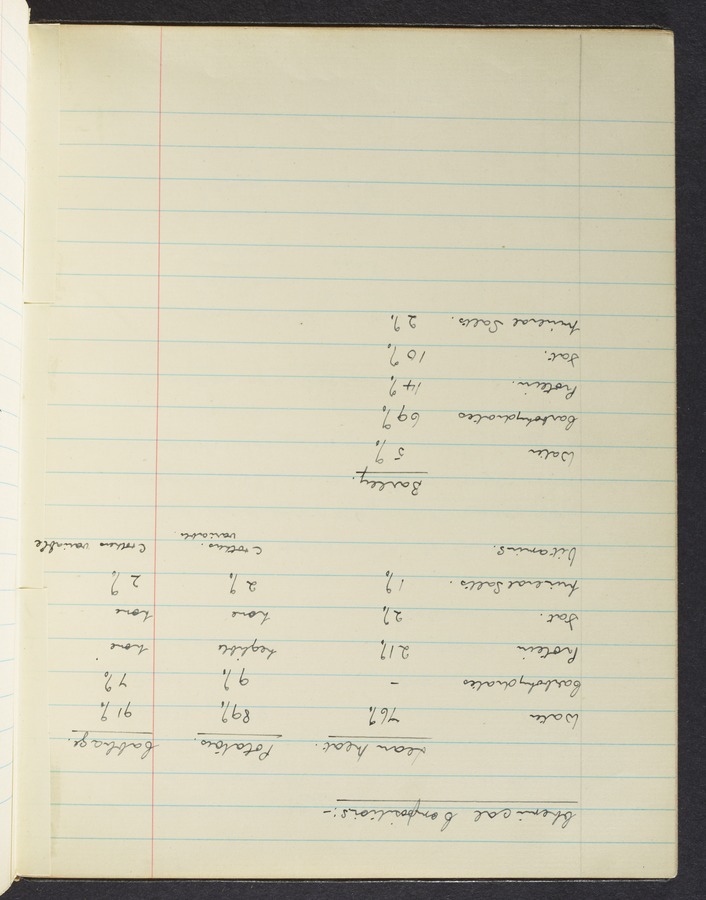 Chemical Compositions:-
Lean Meat. Potatoes. Cabbage.
Water 76% 89% 91%
Carbohydrates - 9% 7%
Protein 21% neglible none
Fat. 2% none none
Mineral Salts. 1% 2% 2%
Vitamins. C others variable C others variable
Barley.
Water 5%
Carbohydrates 69%
Protein. 14%
Fat. 10%
Mineral Salts. 2%